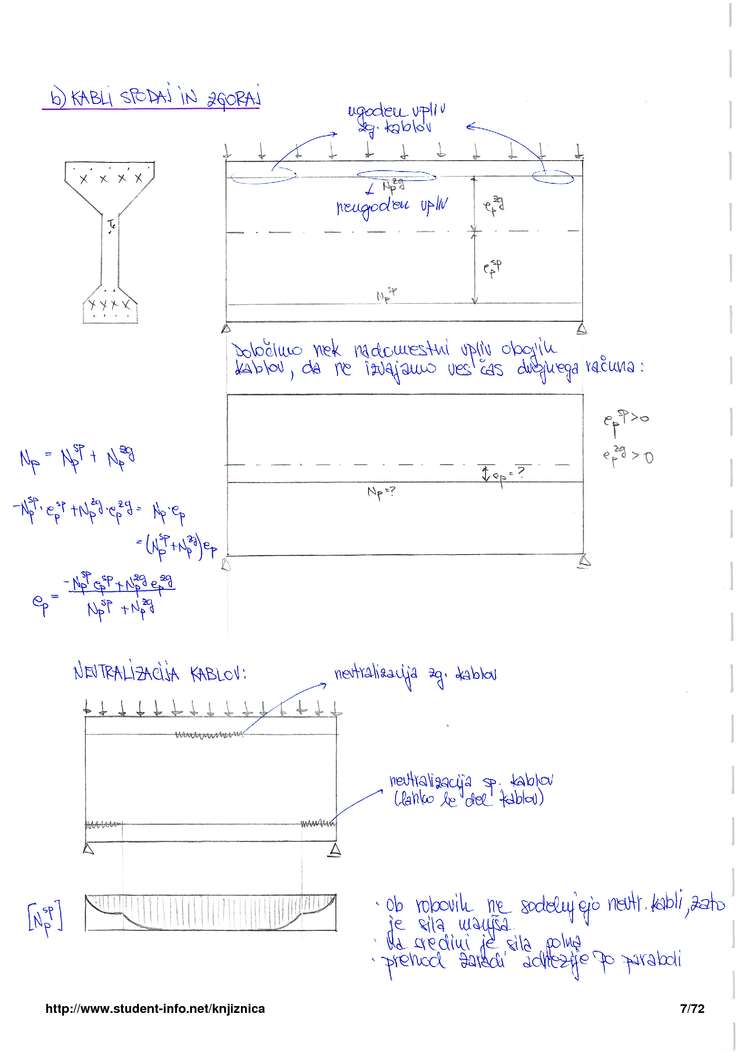 b) KABLI SPODAJ IN ZGORAJ
ugoden vpliv
zg. kablov
Np^zg
neugoden vpliv
ep^zg
Te
ep^sp
Np^sp
Določimo nek nadomestni vpliv obojih
kablov, da ne izvajamo ves čas dvojnega računa:
ep^sp>0
ep^zg>0
Np = Np^sp + Np^zg
ep=?
Np=?
-Np^sp·ep^sp+Np^zg·ep^zg = Np·ep
=(Np^sp+Np^zg)ep
ep = (-Np^sp ep^sp+Np^zg ep^zg)/(Np^sp+Np^zg)
NEVTRALIZACIJA KABLOV:
nevtralizacija zg. kablov
nevtralizacija sp. kablov
(lahko le del kablov)
[Np^sp]
· ob robovih ne sodelujejo nevtr. kabli, zato
je sila manjša
· na sredini je sila polna
· prehod zaradi adhezije po paraboli
http://www.student-info.net/knjiznica
7/72